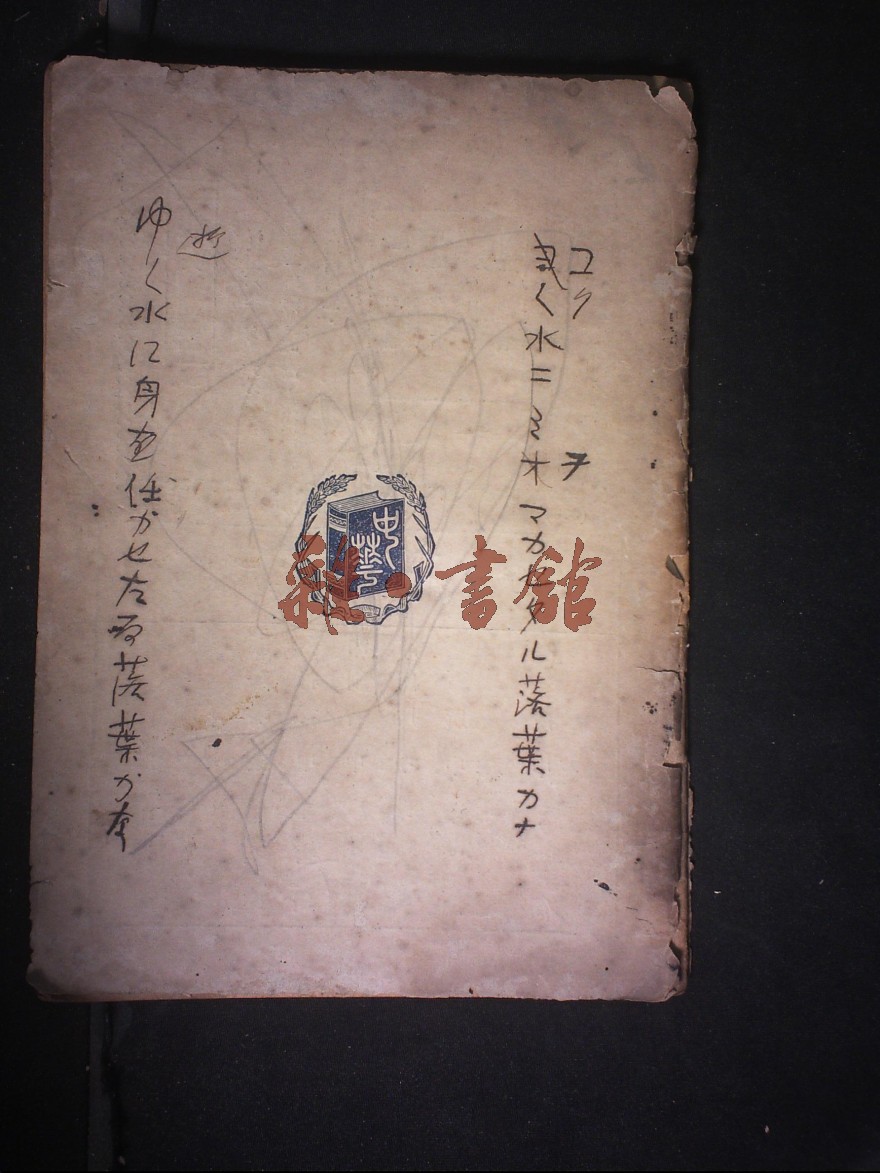 ユク
く水ニミオマカセタル落葉カナ
ヲ
雜·書館
逝
ゆく水に身を任かせたる落葉かな